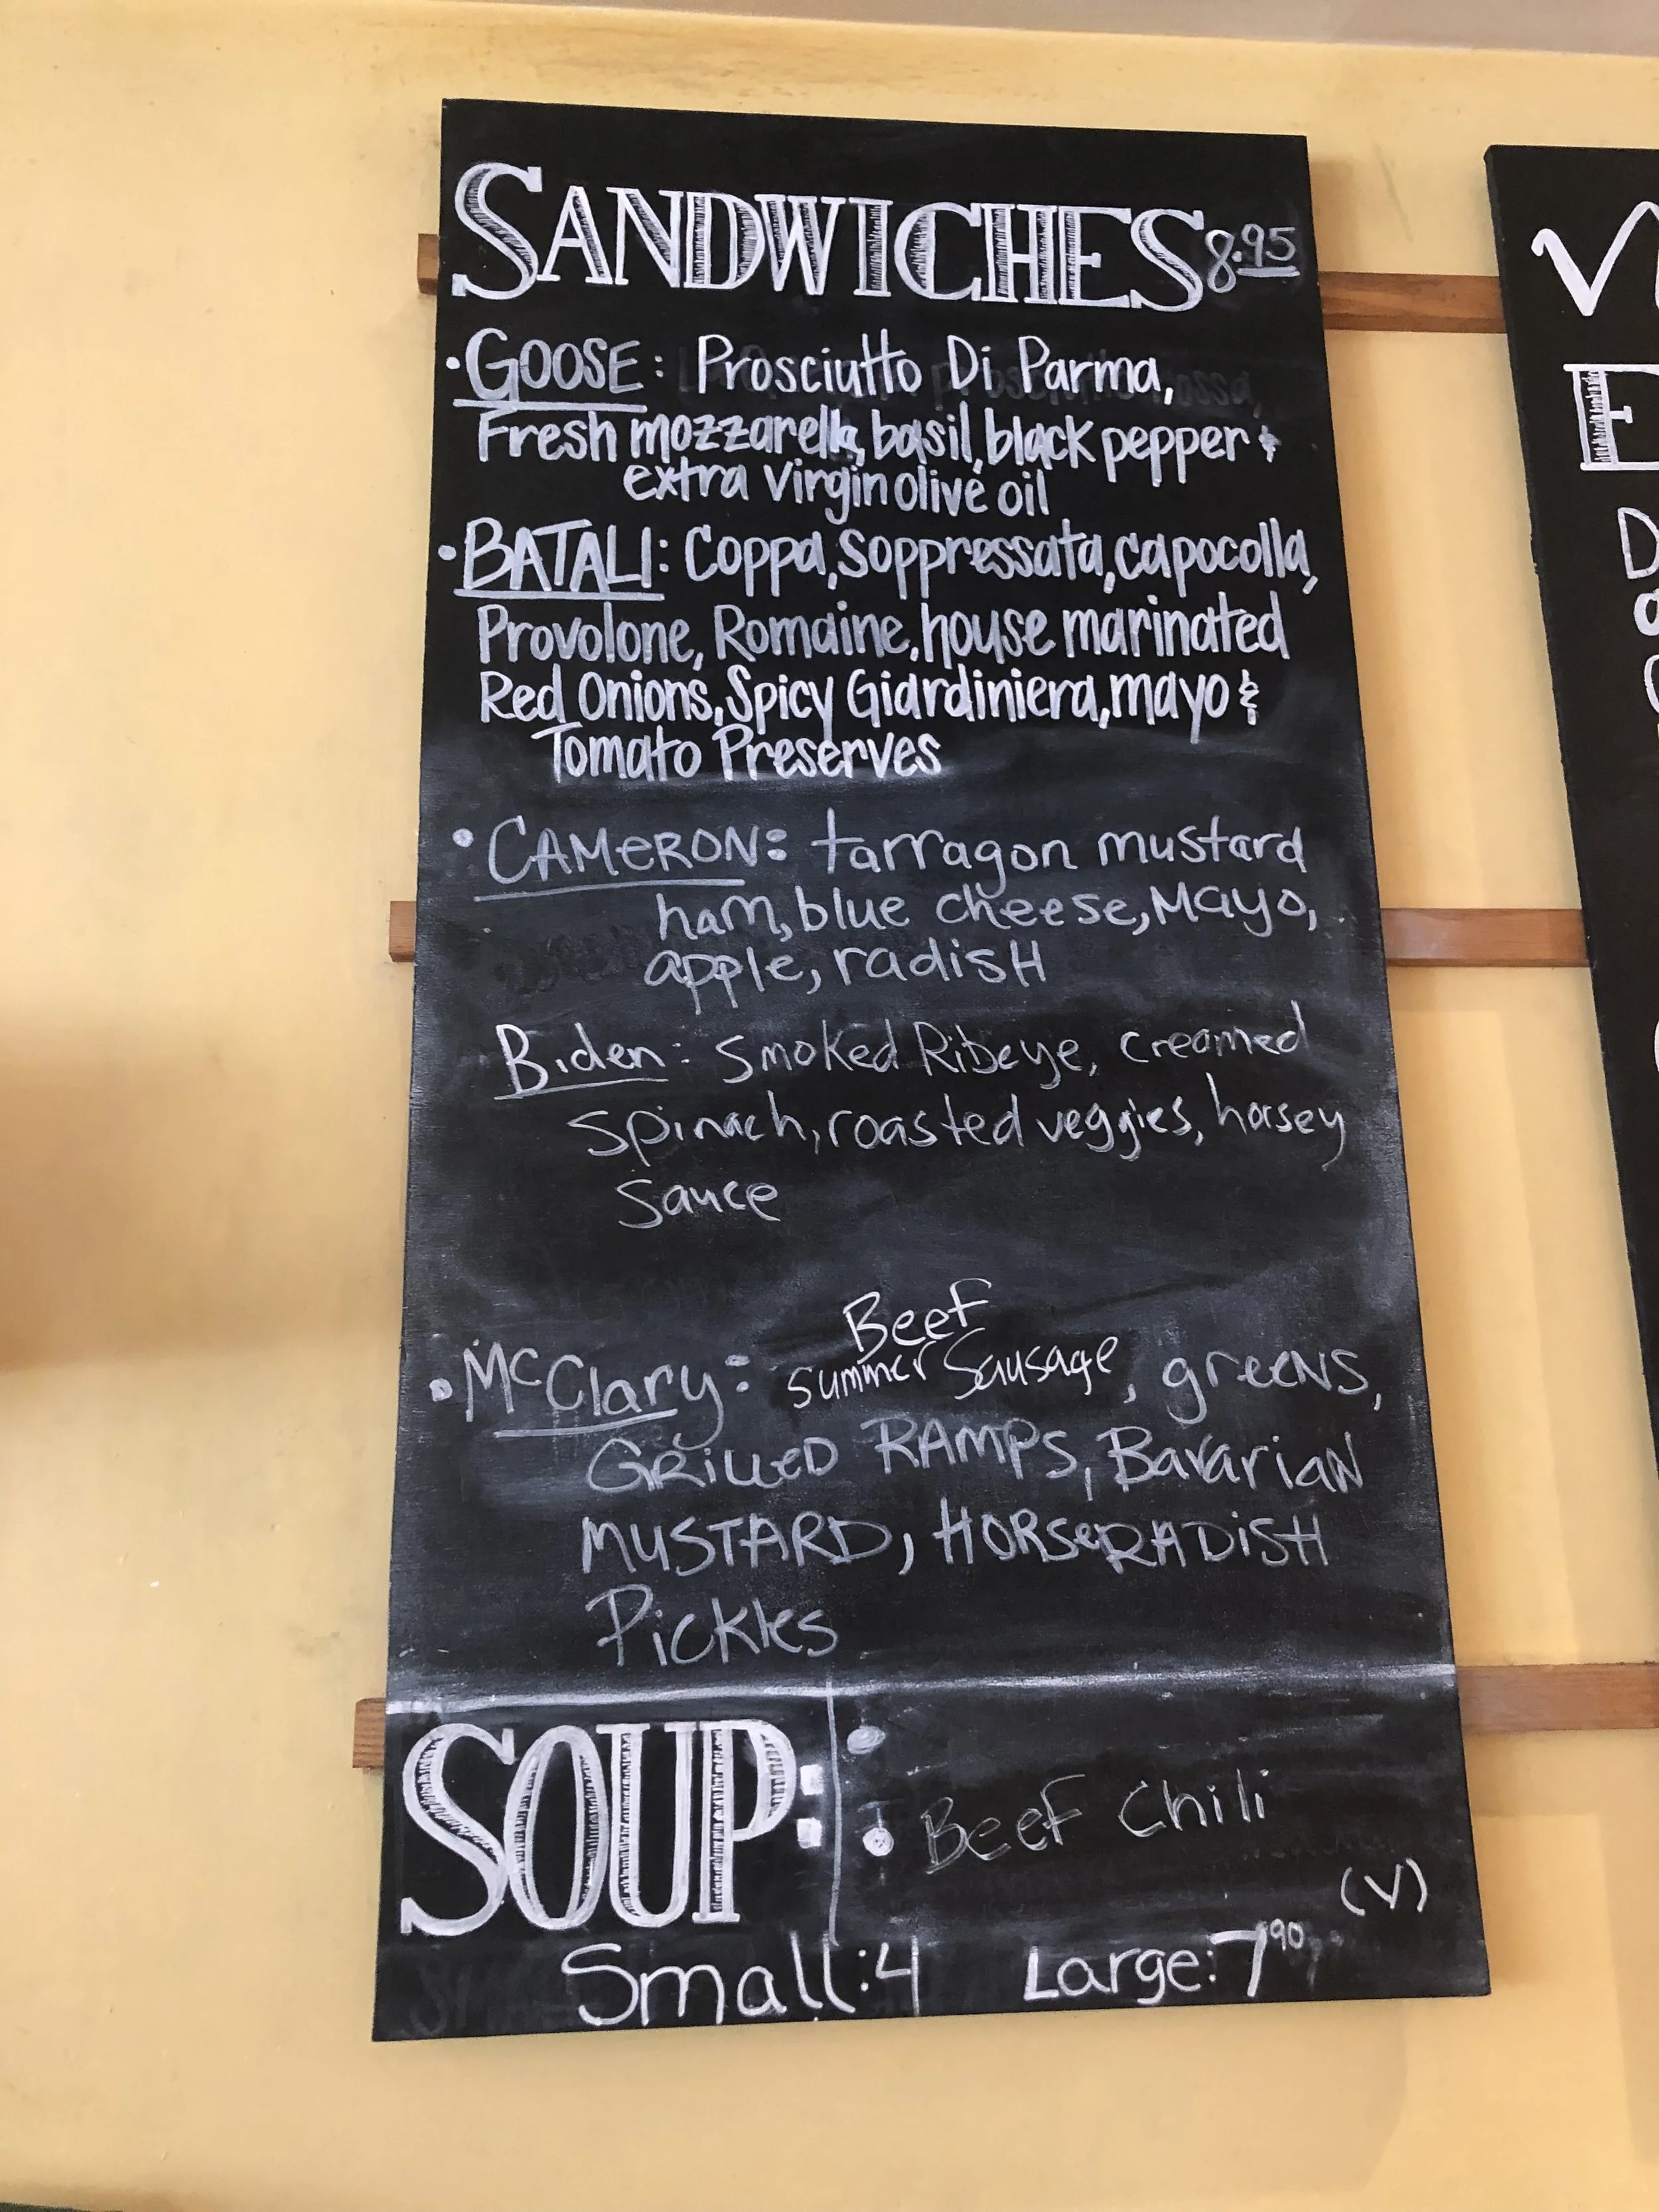 SANDWICHES 8.95
• GOOSE: Prosciutto Di Parma,
Fresh mozzarella, basil, black pepper &
extra virgin olive oil
• BATALI: Coppa, Soppressata, capocolla,
Provolone, Romaine, house marinated
Red Onions, Spicy Giardiniera, mayo &
Tomato Preserves
• CAMERON: tarragon mustard
ham, blue cheese, Mayo,
apple, radisH
Biden: Smoked Ribeye, creamed
Spinach, roasted veggies, horsey
Sauce
Beef
• McClary: Summer Sausage, greens,
GRilleD RAMPS, Bavarian
MUSTARD, HORSeRADiSH
Pickles
SOUP:
• Beef Chili
(V)
Small: 4 Large: 7.90
V
E
D